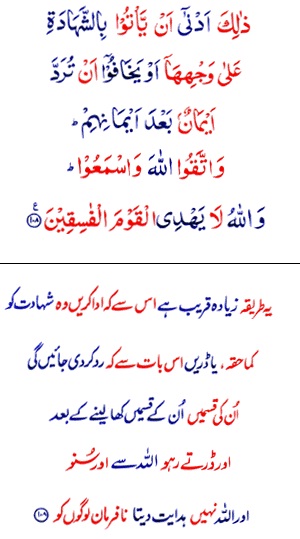 ذٰلِكَ اَدْنٰۤى اَنْ يَّاْتُوْا بِالشَّهَادَةِ
عَلٰى وَجْهِهَاۤ اَوْ يَخَافُوْۤا اَنْ تُرَدَّ
اَيْمَانٌۢ بَعْدَ اَيْمَانِهِمْ ؕ
وَاتَّقُوا اللّٰهَ وَاسْمَعُوْا ؕ
وَاللّٰهُ لَا يَهْدِى الْقَوْمَ الْفٰسِقِيْنَ ۧ ﴿۱۰۸﴾
یہ طریقہ زیادہ قریب ہے اس سے کہ ادا کریں وہ شہادت کو
کماحقہ، یا ڈریں اس بات سے کہ رد کر دی جائیں گی
اُن کی قسمیں اُن کے قسمیں کھا لینے کے بعد
اور ڈرتے رہو اللہ سے اور سُنو
اور اللہ نہیں ہدایت دیتا نافرمان لوگوں کو ﴿۱۰۸﴾